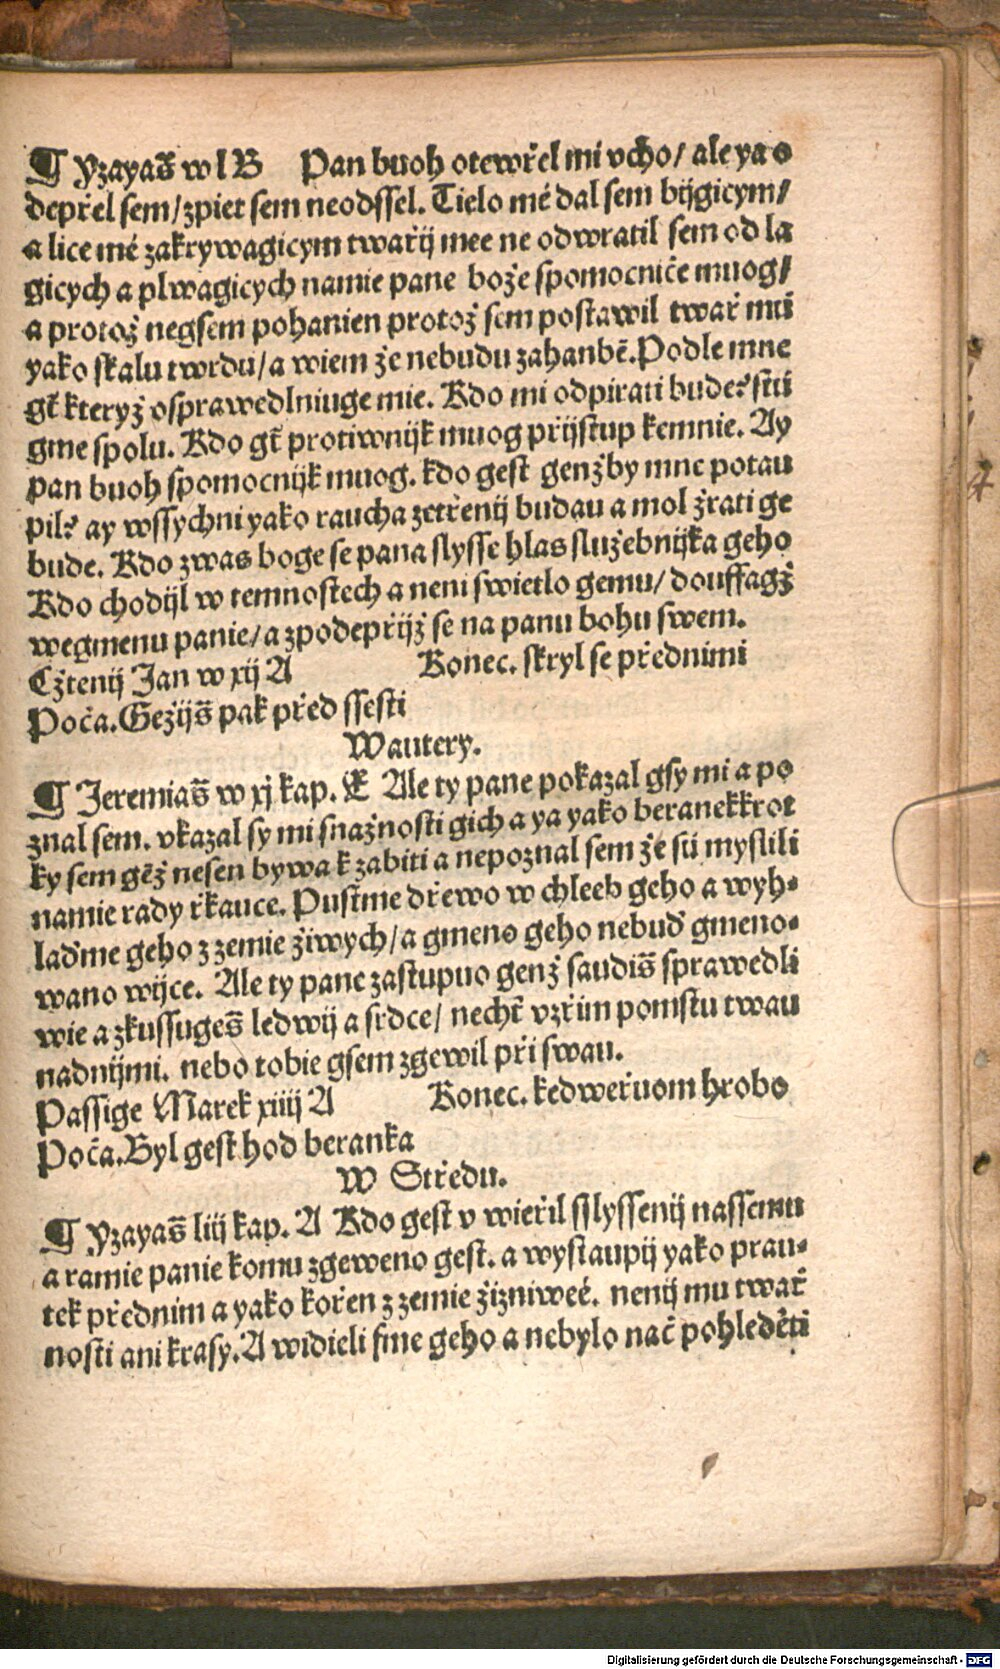 ¶ Yzayaš w l B Pan buoh otewřel mi vcho/ ale ya o
depřel sem/ zpiet sem neodssel. Tielo mé dal sem bijgicym/
a lice mé zakrywagicym twařij mee ne odwratil sem od la
gicych a plwagicych namie pane bože spomocniče muog/
a protož negsem pohanien protož sem postawil twař mú
yako skalu twrdu/ a wiem že nebudu zahanbē. Podle mne
gť kteryž osprawedlniuge mie. Kdo mi odpirati bude? stú
gme spolu. Kdo gť protiwnijk muog přijstup kemnie. Ay
pan buoh spomocnijk muog. kdo gest genžby mne potau
pil? ay wssychni yako raucha zetřenij budau a mol žrati ge
bude. Kdo zwas boge se pana slysse hlas služebnijka geho
Kdo chodijl w temnostech a neni swietlo gemu/ douffagž
wegmenu panie/ a zpodepřijž se na panu bohu swem.
Cžtenij Jan w xij A Konec. skryl se přednimi
Poča. Gežijš pak před ssesti
Wautery.
¶ Jeremiaš w xj kap. E Ale ty pane pokazal gsy mi a po
znal sem. vkazal sy mi snažnosti gich a ya yako beranekkrot
ky sem gēž nesen bywa k zabiti a nepoznal sem že sú myslili
namie rady řkauce. Pustme dřewo w chleeb geho a wyh-
laďme geho z zemie žiwych/ a gmeno geho nebuď gmeno-
wano wijce. Ale ty pane zastupuo genž saudiš sprawedli
wie a zkussugeš ledwij a srdce/ nechť vzřim pomstu twau
nadnijmi. nebo tobie gsem zgewil při swau.
Passige Marek xiiij A Konec. kedweřuom hrobo
Poča. Byl gest hod beranka
w Středu.
¶ Yzayaš liij kap. A Kdo gest v wieřil slyssenij nassemu
a ramie panie komu zgeweno gest. a wystaupij yako prau-
tek přednim a yako kořen z zemie žizniweé. nenij mu twař
nosti ani krasy. A widieli sme geho a nebylo nač pohleděti
Digitalisierung gefördert durch die Deutsche Forschungsgemeinschaft - DFG